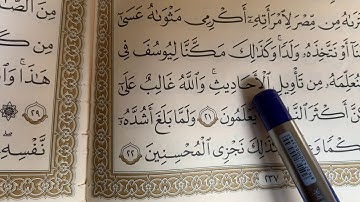 ـرَىٰهُ مِن مِّصْرَ لِٱمْرَأَتِهِۦٓ أَكْرِمِى مَثْوَىٰهُ عَسَىٰٓ
أَوْ نَتَّخِذَهُۥ وَلَدًا ۚ وَكَذَٰلِكَ مَكَّنَّا لِيُوسُفَ فِى
ـعَلِّمَهُۥ مِن تَأْوِيلِ ٱلْأَحَادِيثِ ۚ وَٱللَّهُ غَالِبٌ عَلَىٰٓ
أَكْثَرَ ٱلنَّاسِ يَعْلَمُونَ ٢١ وَلَمَّا بَلَغَ أَشُدَّهُۥٓ
وَكَذَٰلِكَ نَجْزِى ٱلْمُحْسِنِينَ ٢٢
٢٣٧
مِن كَـ
هَٰذَا ۚ وَٱ
٢٩
نَّفْسِهِۦ